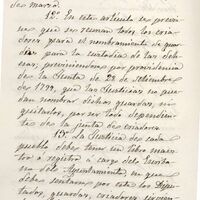 de marzo.
12.º En este articulo se previe-
ne que se reunan todos los cria-
dores para el nombramiento de guar-
das para la custodia de las dehe-
sas; previniendose por providencia
de la Junta de 28 de Setiembre
de 1799, que las Justicias no pue-
dan nombrar dichos guardas, ni
quitarlos, por ser todo dependien-
te de la junta de criadores.
13.º La Justicia de cada
pueblo debe tener un libro maes-
tro ó registro á cargo del Escriba-
no del Ayuntamiento en que
debe sentarse por este los Dipu-
tados, guardas, criadores,